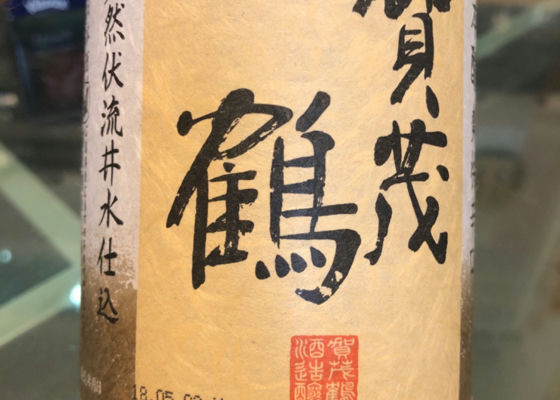 賀茂
鶴
然伏流井水仕込
賀茂鶴
18.05.09